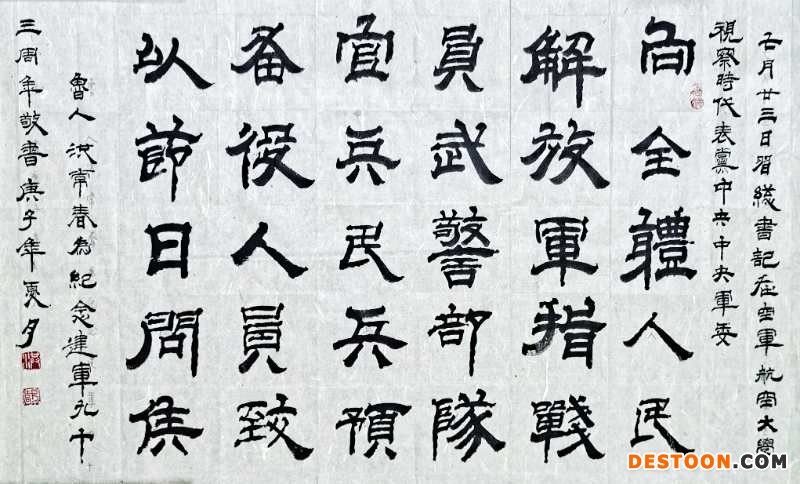 七月廿三日習總書記在空軍航空大學
視察時代表黨中央中央軍委
向全體人民
解放軍指戰
員武警部隊
官兵民兵預
备役人員致
以節日問候
魯人洪常春為紀念建軍九十
三周年敬書庚子年夏月
DESTOON.COM